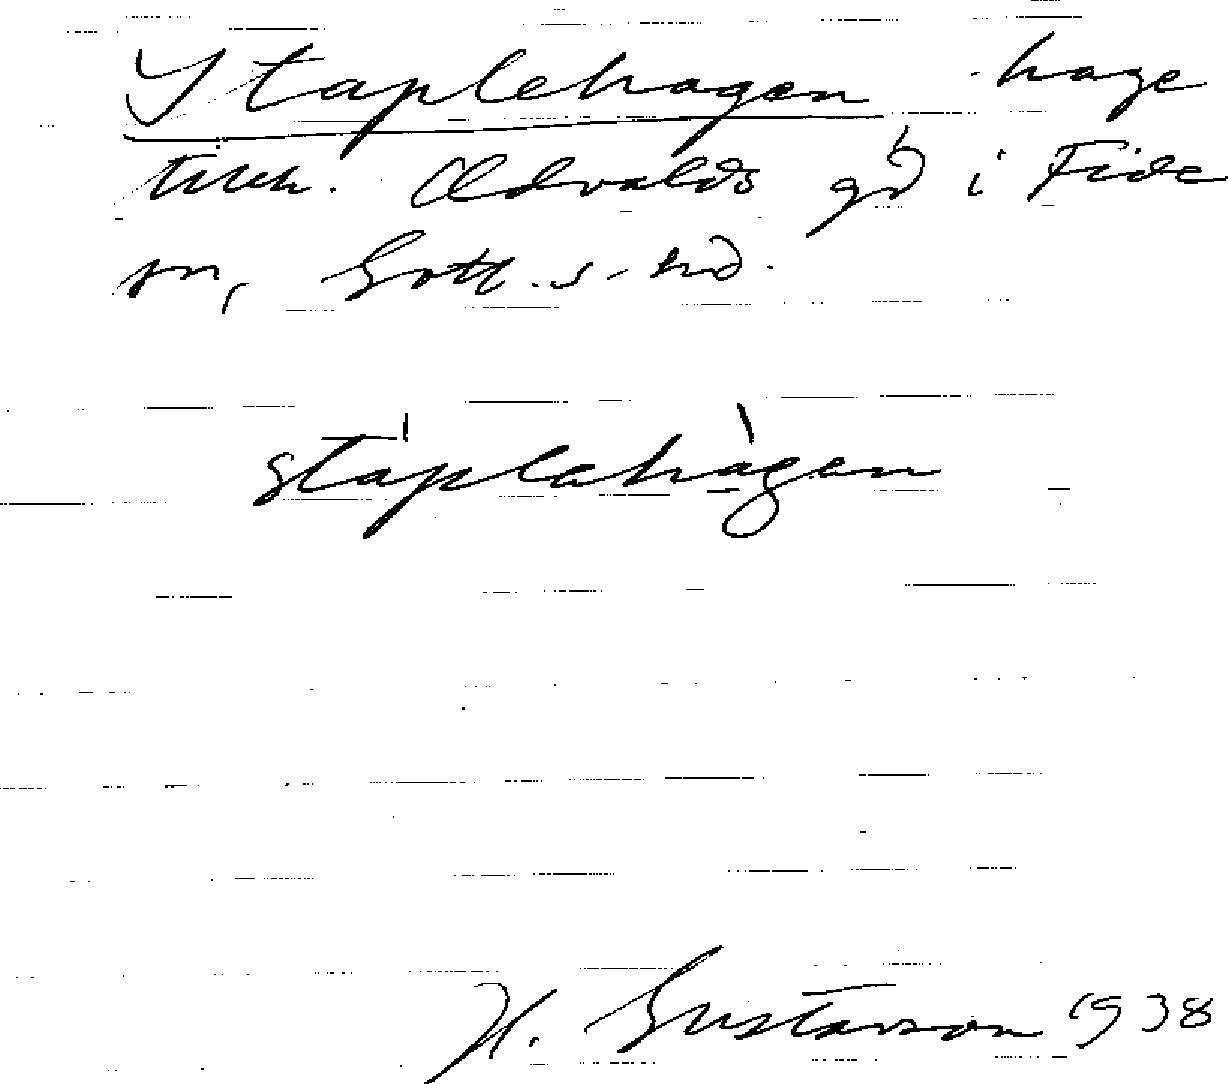 Staplehagen hage
tillh. Odvalds gd i Fide
sn, Gotl. s. hd.
staplahagen
H. Gustavson 1938